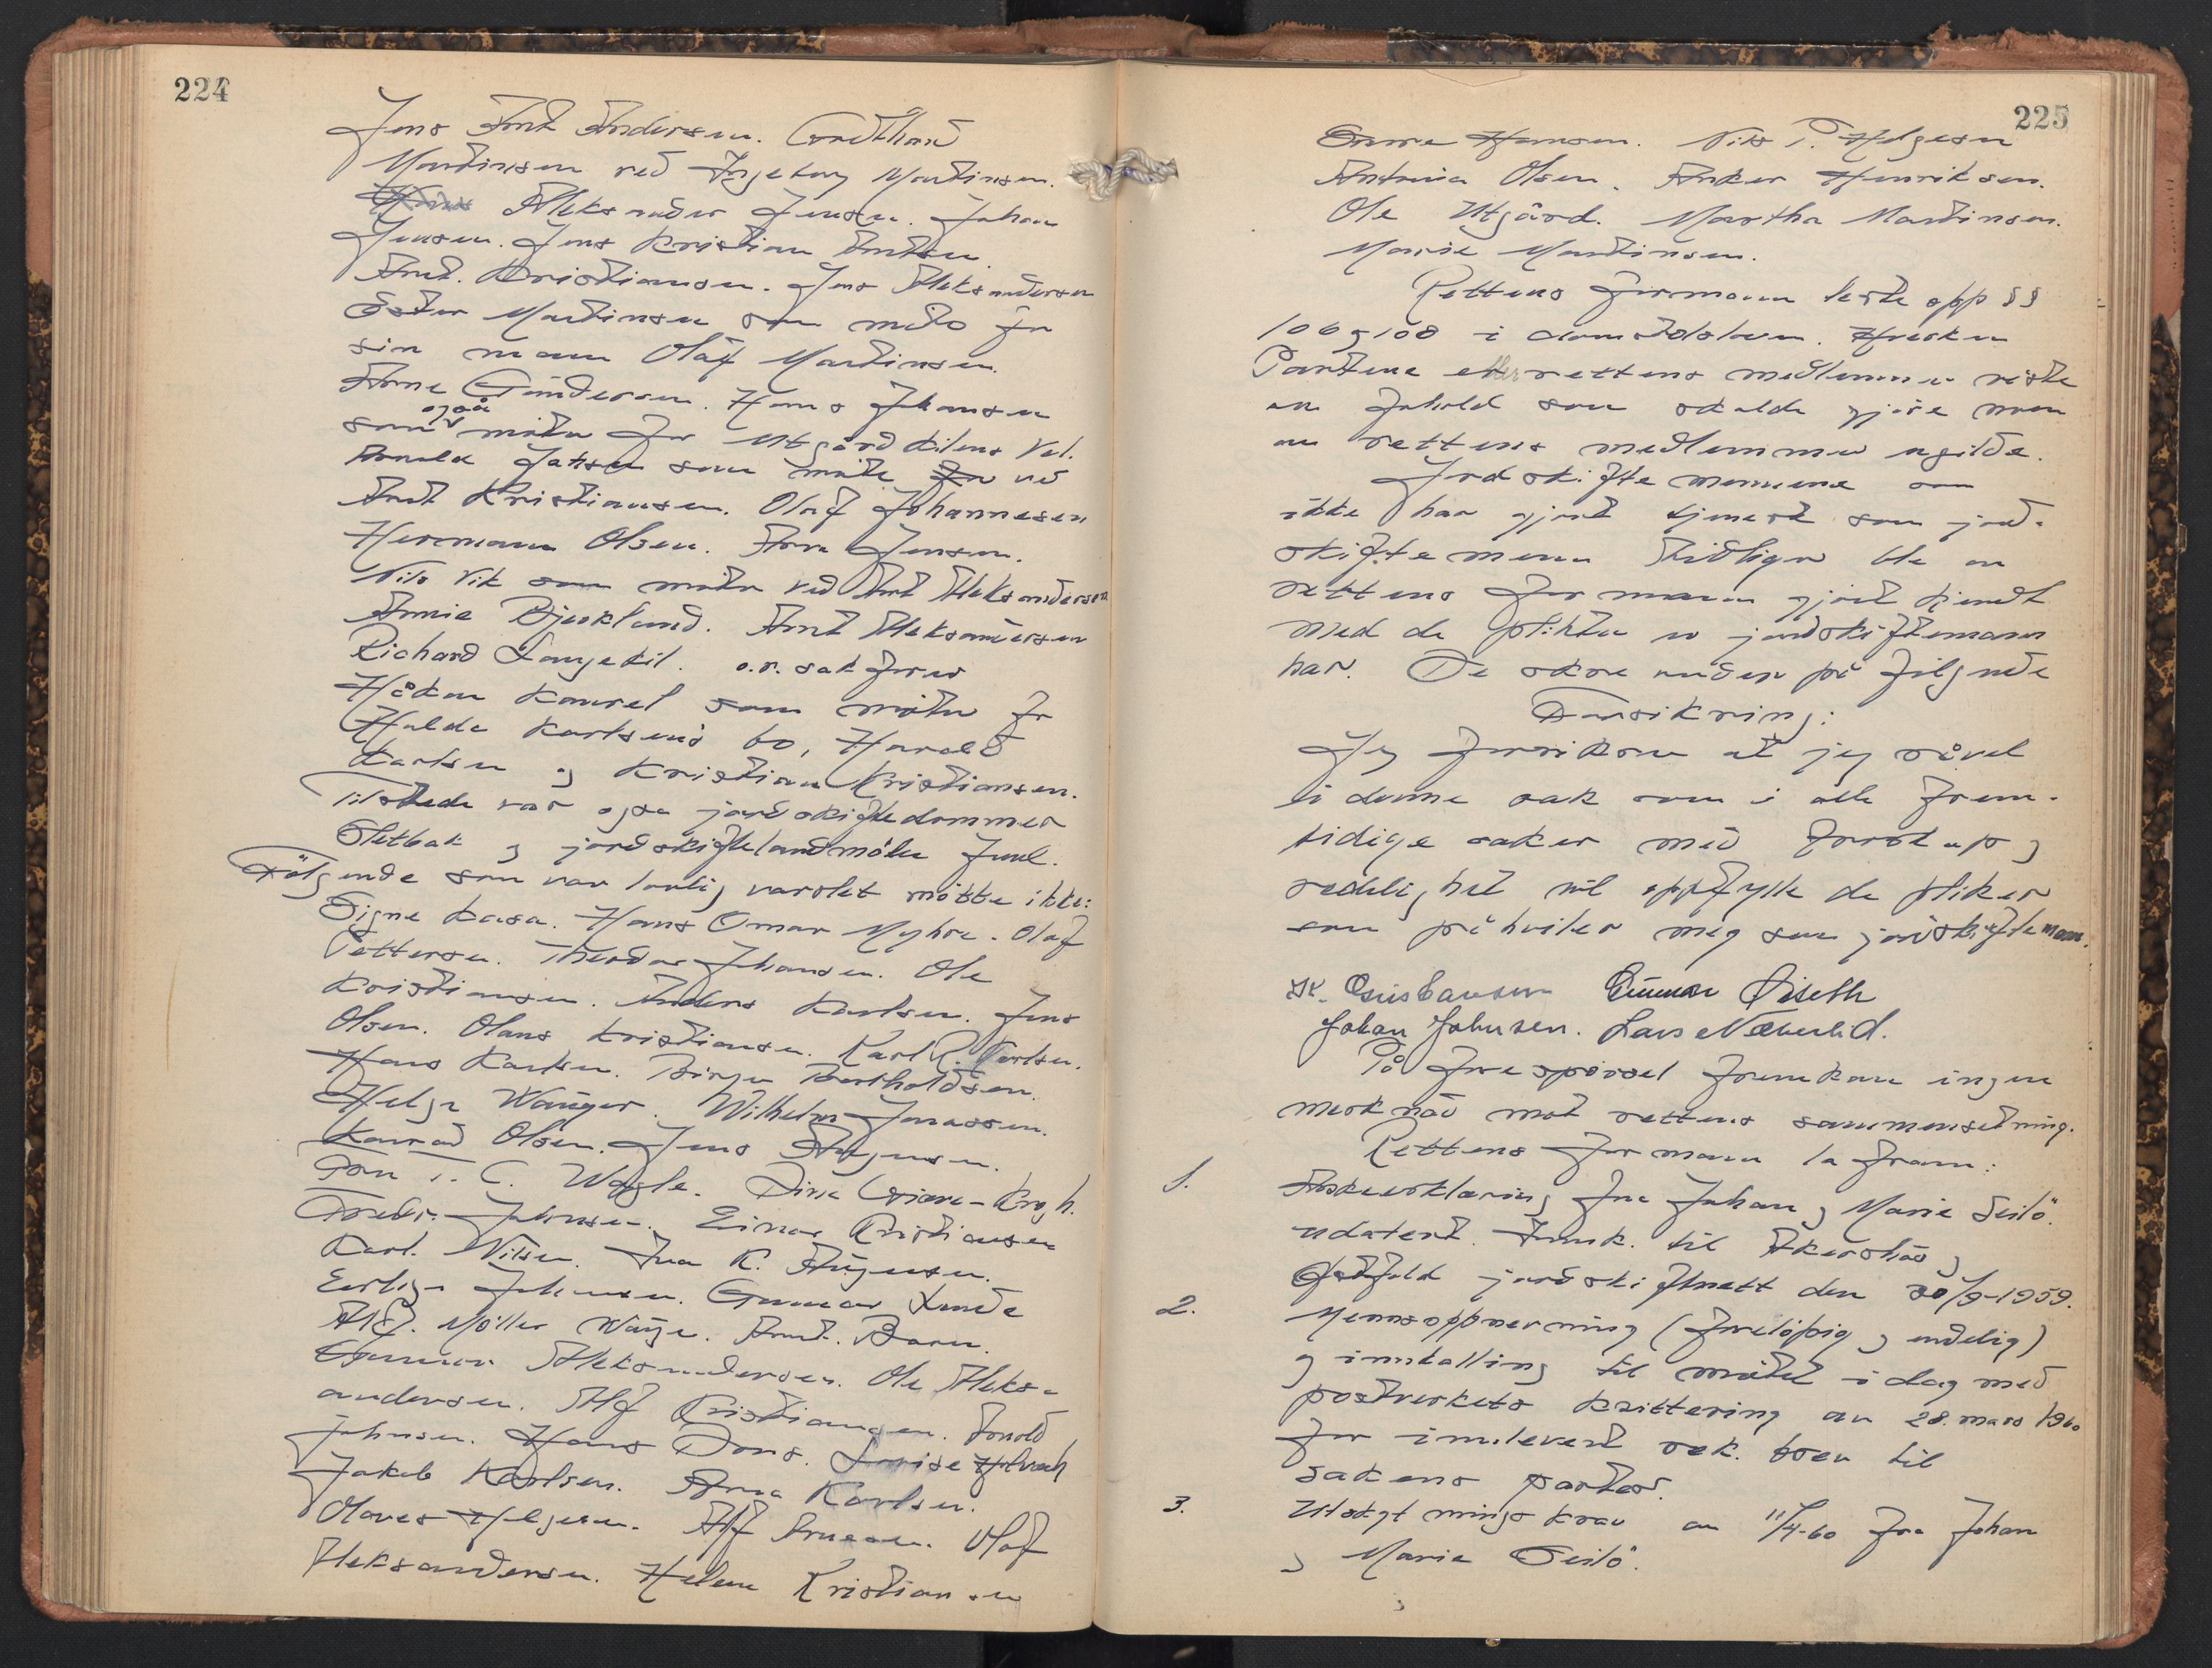 224
Jens Arnt Andersen. Gotthard
Martinsen ved Ingeborg Martinsen.
Aleksander Jensen. Johan
Jensen. Jens Kristian Arntsen.
Arnt. Kristiansen. Jens Aleksandersen
Ester Martinsen som møto for
sin mann Olaf Martinsen.
Arne Gundersen. Hans Johansen
også
som møter for Utgårdkilens Vel.
Arnold Johnsen som møte for ved
Arnt Kristiansen. Olaf Johannesen
Hermann Olsen. Arne Jensen.
Nils Vik som møter ved Arnt Aleksandersen
Annie Bjerklund. Arnt Aleksandersen
Richard Langekil. o.r. sakfører
Håkon Kaurel som møter for
Hulda Karlsens bo, Harald
Karlsen og Kristian Kristiansen.
Tilstede var også jordskiftedommer
Sletbak og jordskiftelandmåler Juul.
Følgende som var lovlig varslet møtte ikke:
Signe Kasa. Hans Omar Myhre. Olaf
Pettersen. Theodor Johansen. Ole
Kristiansen. Anders Karlsen. Jens
Olsen. Olaus Kristiansen. Karl R. Karlsen.
Hans Karlsen. Birger Bertholdsen.
Helge Wanger. Wilhelm Jonassen.
Konrad Olsen. Jens Jørgensen.
T. C. Wagle. Dina Krogh.
Fredrik Johnsen. Einar Kristiansen
Karl. Nilsen. Ina R. Jørgensen.
Erling Johansen. Gunnar Lunde
Alf. Møller Wang. Arnt. Baru.
Gunnar Aleksandersen. Ole Aleks-
andersen. Alf Kristiansen. Arnold
Johnsen. Hans Dons. Lovise
Jakob Karlsen. Anna Karlsen.
Olaves Helgesen. Alf Arnesen. Olaf
Aleksandersen. Helene Kristiansen
225
Hansen. Nils P. Helgesen
Antonia Olsen. Anker Henriksen.
Ole Utgård. Martha Martinsen.
Marie Martinsen.
Rettens formann leste opp §§
106 og 108 i domstolsloven. Hverken
Partene eller rettens medlemmer viste
om forhold som skulde gjøre noen
av rettens medlemmer ugilde.
Jordskiftemennene som
ikke har gjort tjenest som jord-
skiftemenn tidligere ble av
rettens formann gjort kjendt
med de plikter en jordskiftemann
har. De skrev under på følgende
Forsikring:
Jeg forsikrer at jeg såvel
i denne sak som i alle frem-
tidige saker med troskap og
redelighet vil oppfylle de plikter
som påhviler meg som jordskiftemann.
Kr. Gunnar Øiseth
Johan Johnsen. Lars Næverlid.
På forespørsel fremkom ingen
merknad mot rettens sammensetning.
Rettens formann la fram:
1. Ønskeerklæring fra Johan og Marie Seilø.
udatert. Frank. til Akershus og
Østfold jordskifterett den 30/9-1959.
2. Mennsoppnevning (foreløpig og endelig)
og innkalling til møtet i dag med
postverkets kvittering av 28. mars 1960
for innlevert rek. brev til
sakens parter.
3. Utstykningskrav av 11/4-60 fra Johan
og Marie Seilø.